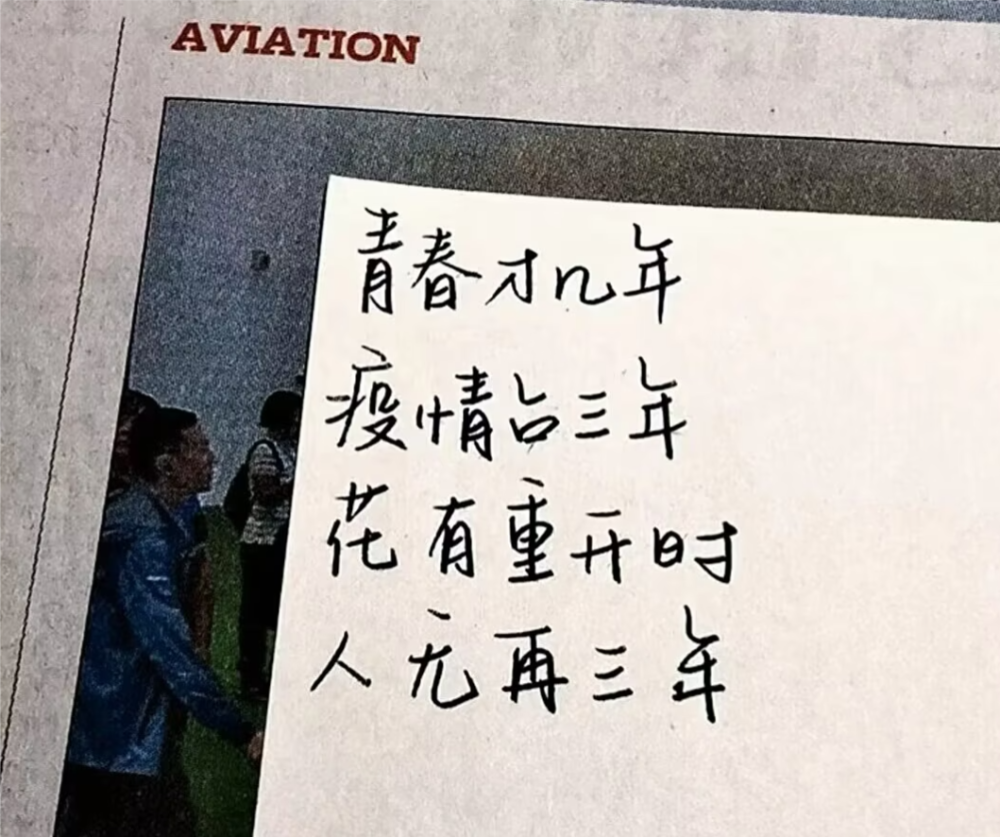 AVIATION
青春才几年
疫情占三年
花有重开时
人无再三年